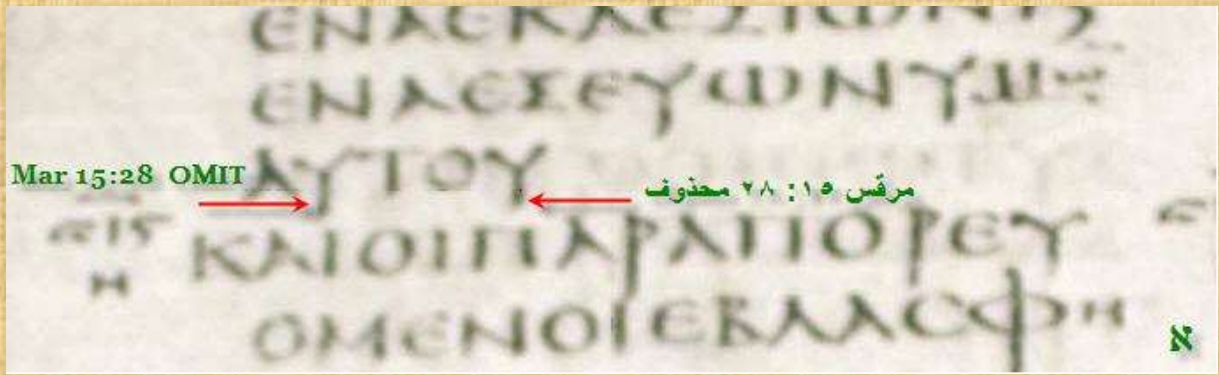 ΕΝΑΕΚΔΕΞΙΩΝ
ΕΝΑΕΞΕΥΩΝΥΜΩ
ΑΥΤΟΥ
Mar 15:28 OMIT
مرقس ١٥: ٢٨ محذوف
CΙϚ ΚΑΙΟΙΠΑΡΑΠΟΡΕΥ
Η
ΟΜΕΝΟΙΕΒΛΑCΦΗ
א